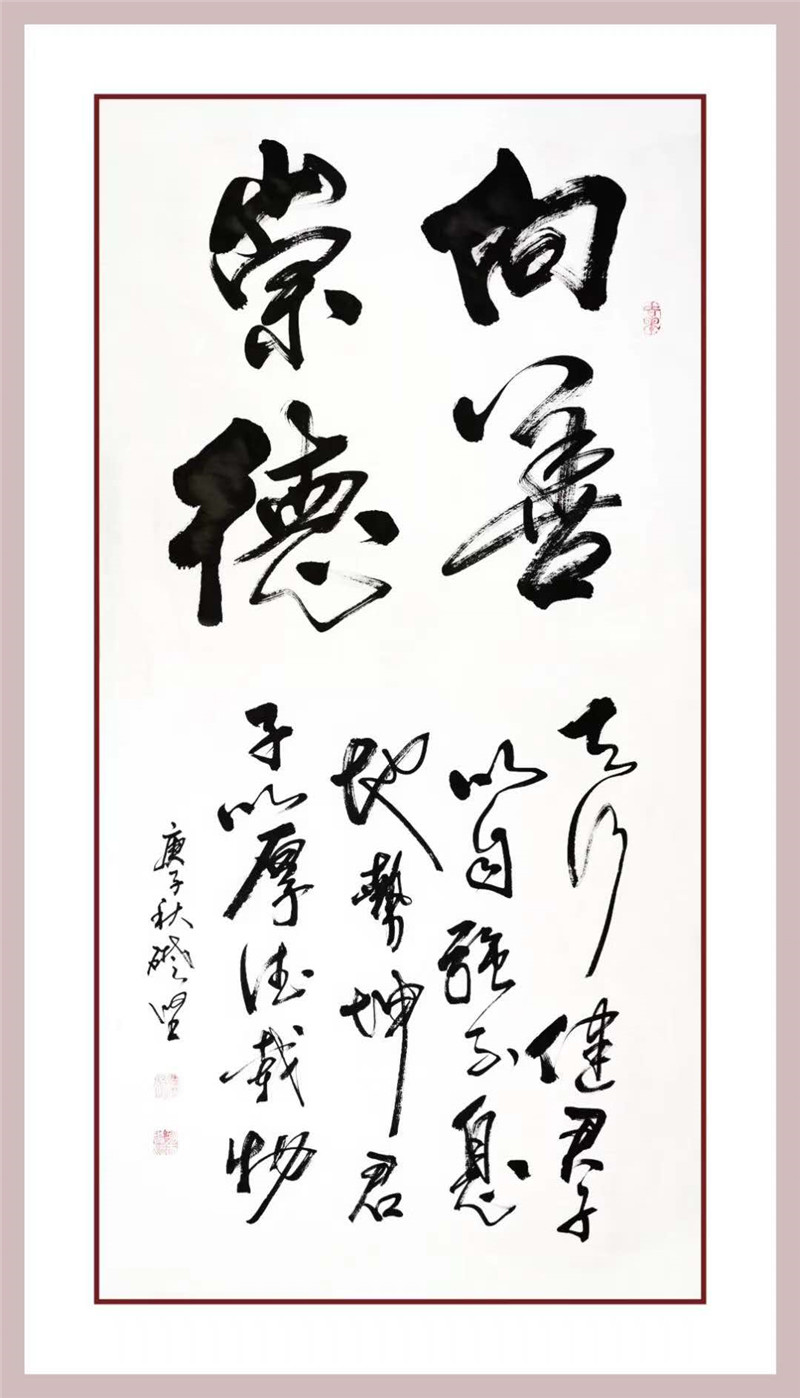 向善
崇德
天行健君子
以自強不息
地勢坤君
子以厚德載物
庚子秋